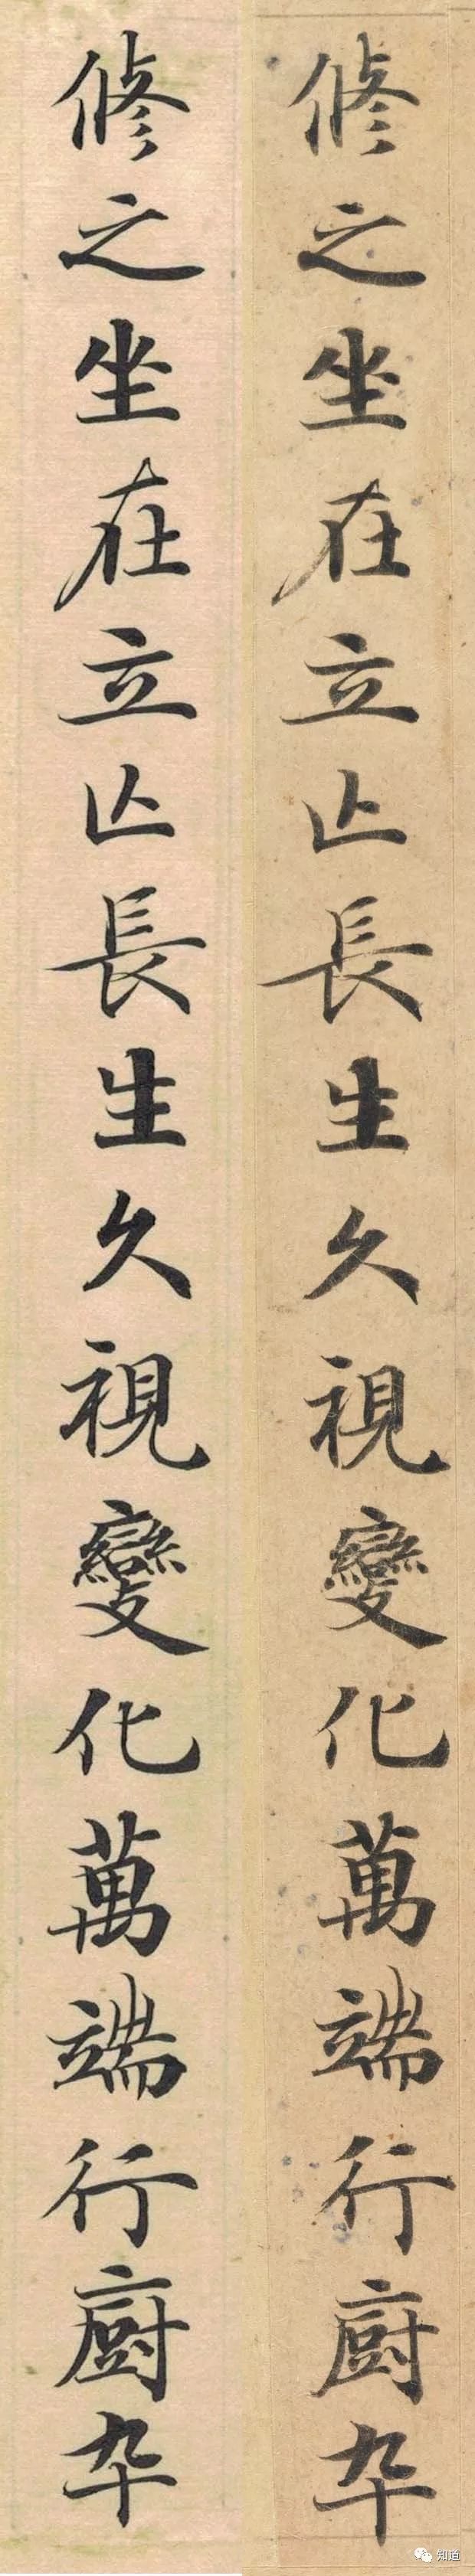 修之坐在立亡長生久視變化萬端行廚卒
修之坐在立亡長生久視變化萬端行廚卒
知道